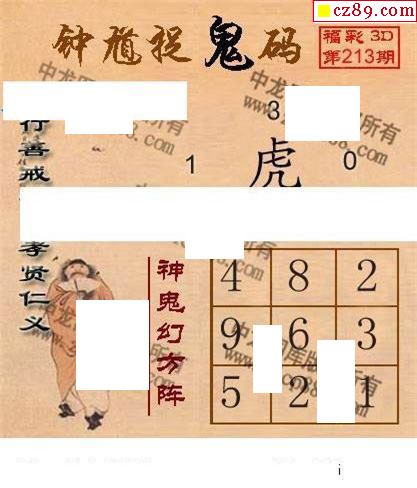 cz89.com
钟馗捉鬼码
福彩 3D
第213期
3
1
虎
0
行善戒
孝贤仁义
神鬼幻方阵
4 8 2
9 6 3
5 2 1
i